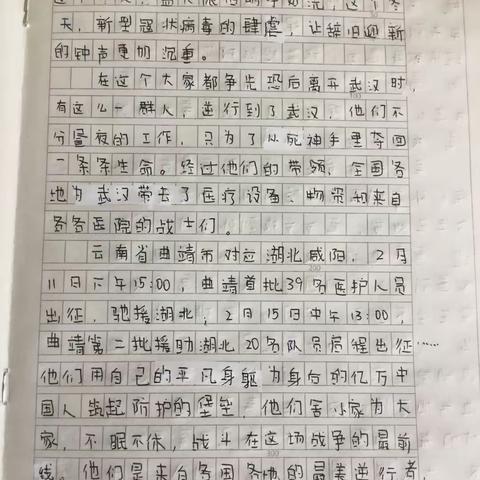 天，新型冠状病毒的肆虐，让辞旧迎新
的钟声更加沉重。
在这个大家都争先恐后离开武汉时，
有这么一群人，逆行到了武汉，他们不
分昼夜的工作，只为了从死神手里夺回
一条条生命。经过他们的带领，全国各
地为武汉带去了医疗设备、物资和来自
各各医院的战士们。
云南省曲靖市对应湖北咸阳，2月
200
11日下午15:00，曲靖首批39名医护人员
出征，驰援湖北，2月15日中午13:00，
曲靖第二批援助湖北20名队员启程出征……
他们用自己的平凡身躯为身后的亿万中
国人筑起防护的堡垒，他们舍小家为大
家，不眠不休，战斗在这场战争的最前
300
线。他们是来自各国各地的最美逆行者，